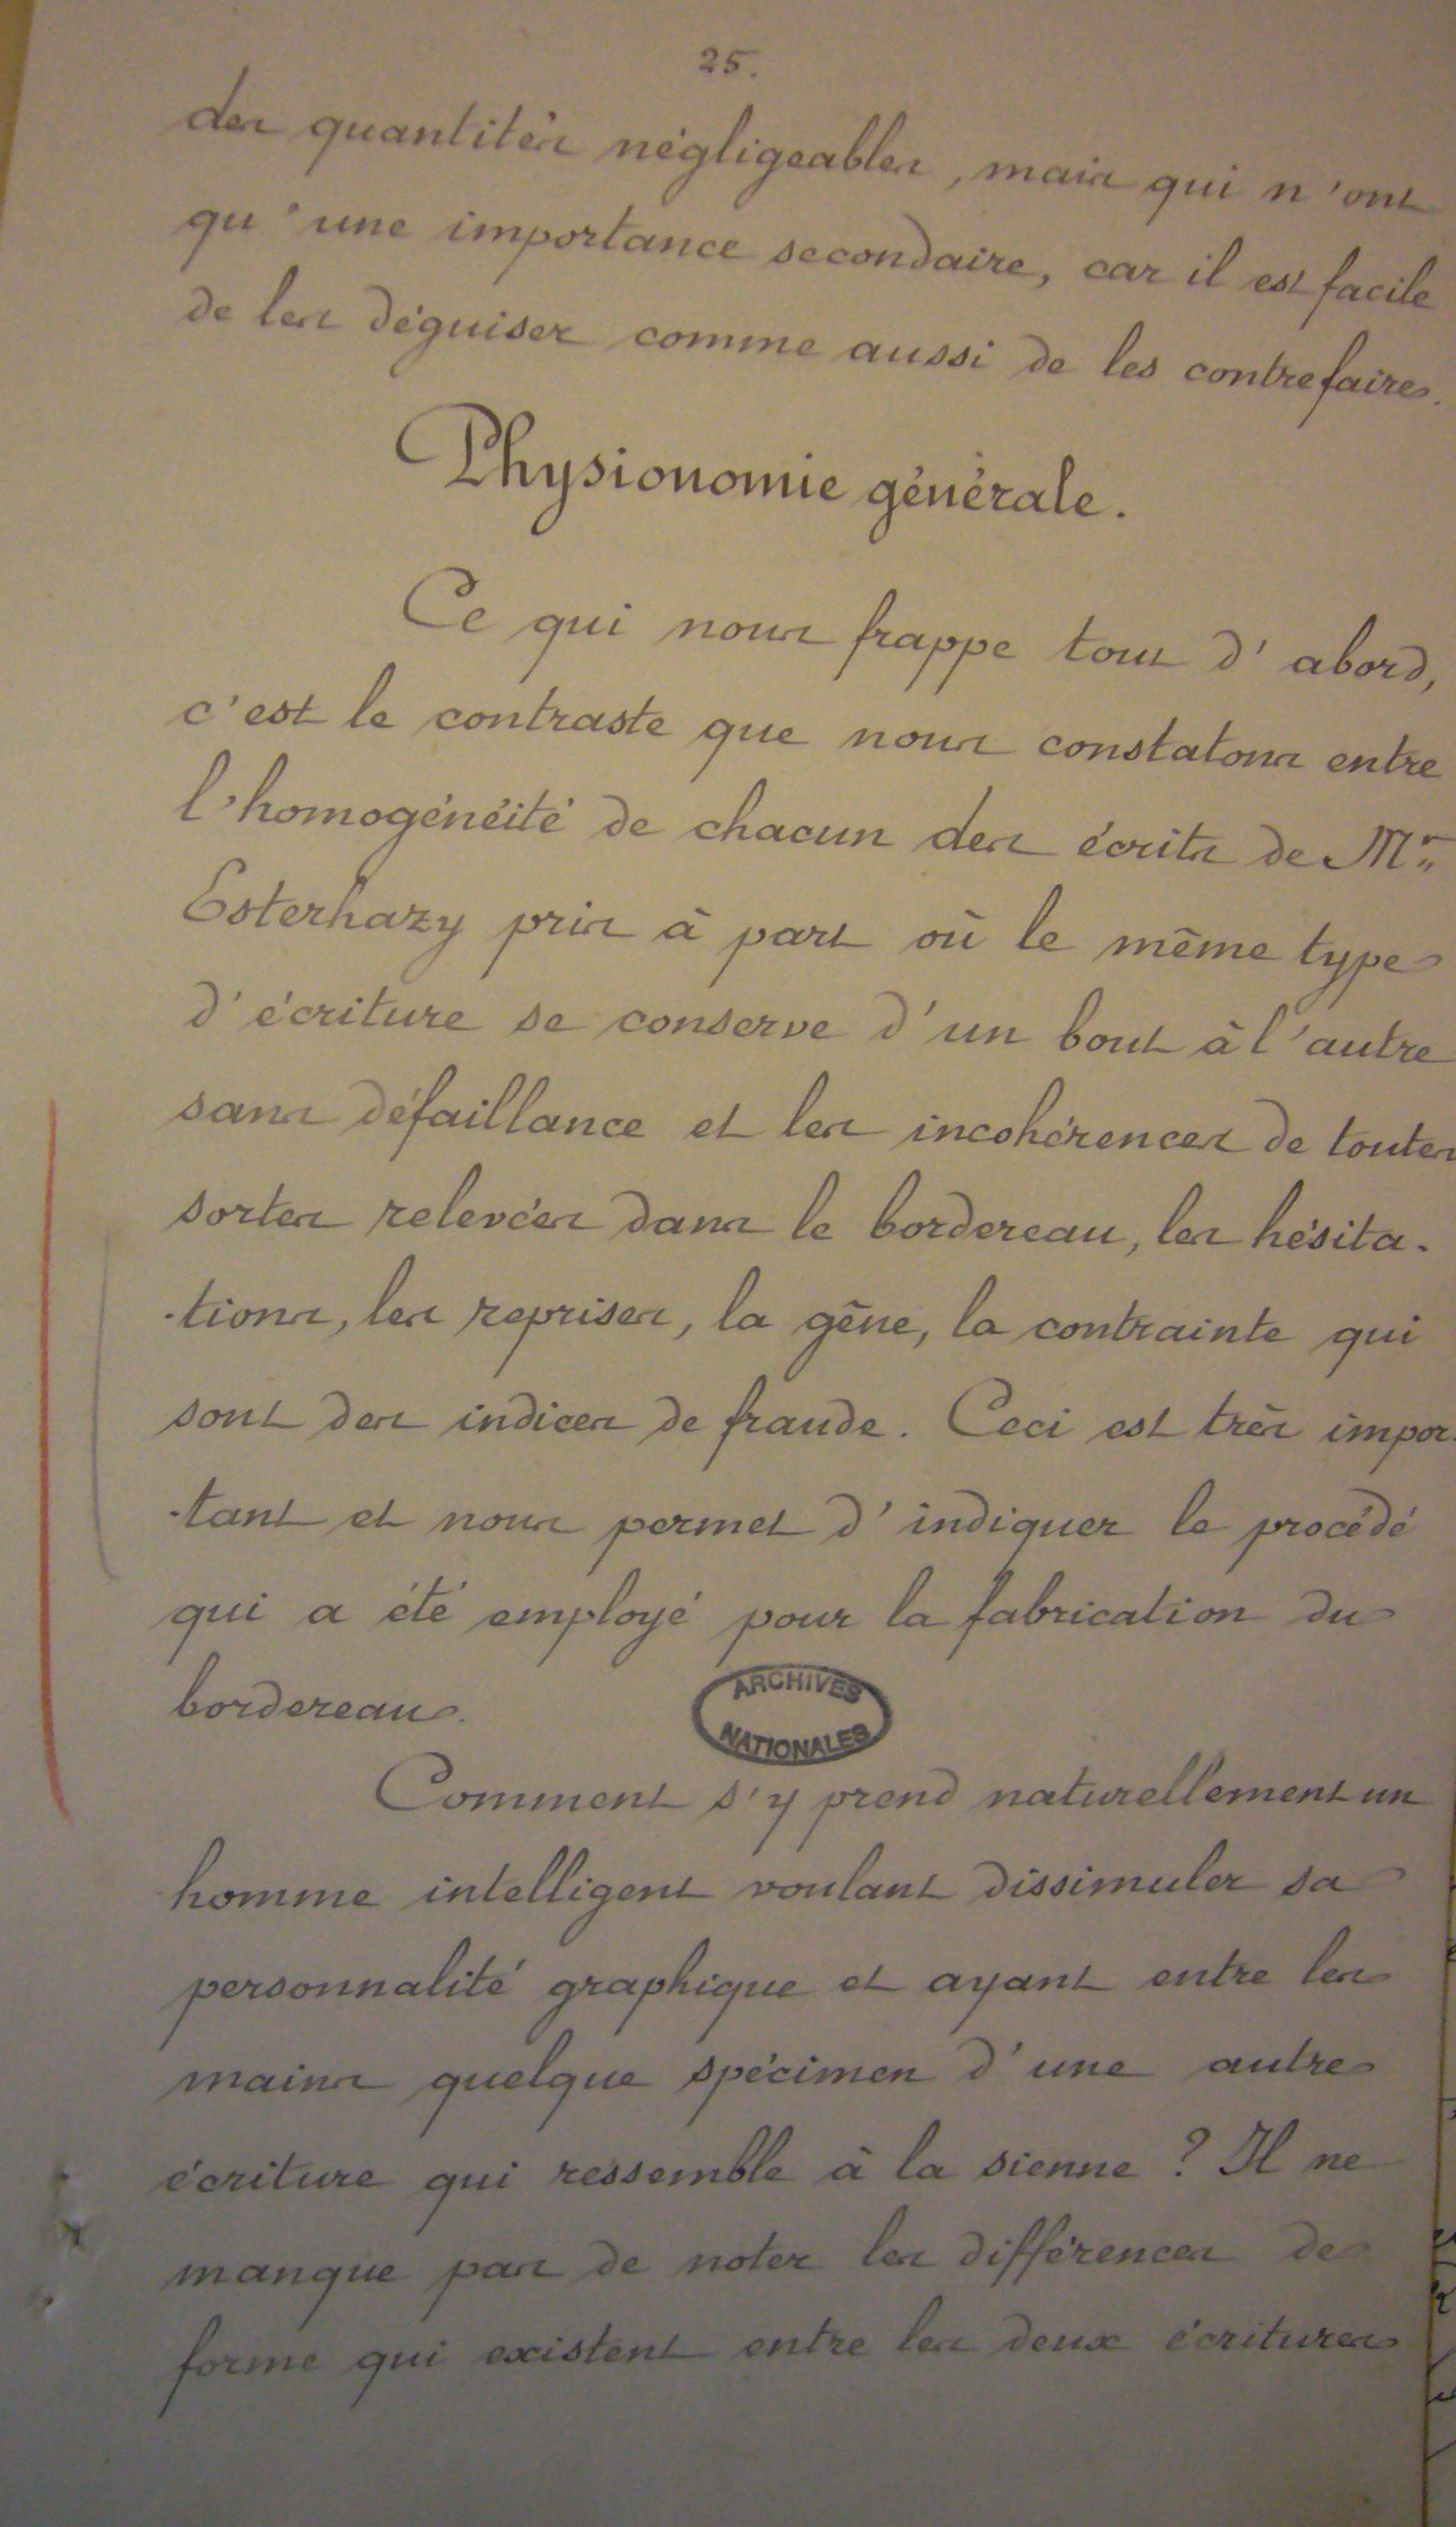 25.
des quantités négligeables, mais qui n'ont
qu'une importance secondaire, car il est facile
de les déguiser comme aussi de les contrefaire.
Physionomie générale.
Ce qui nous frappe tout d'abord,
c'est le contraste que nous constatons entre
l'homogénéité de chacun des écrits de Mr
Esterhazy pris à part où le même type
d'écriture se conserve d'un bout à l'autre
sans défaillance et les incohérences de toutes
sortes relevées dans le bordereau, les hésita-
-tions, les reprises, la gêne, la contrainte qui
sont des indices de fraude. Ceci est très impor-
-tant et nous permet d'indiquer le procédé
qui a été employé pour la fabrication du
bordereau.
ARCHIVES
NATIONALES
Comment s'y prend naturellement un
homme intelligent voulant dissimuler sa
personnalité graphique et ayant entre les
mains quelque spécimen d'une autre
écriture qui ressemble à la sienne ? Il ne
manque pas de noter les différences de
forme qui existent entre les deux écritures